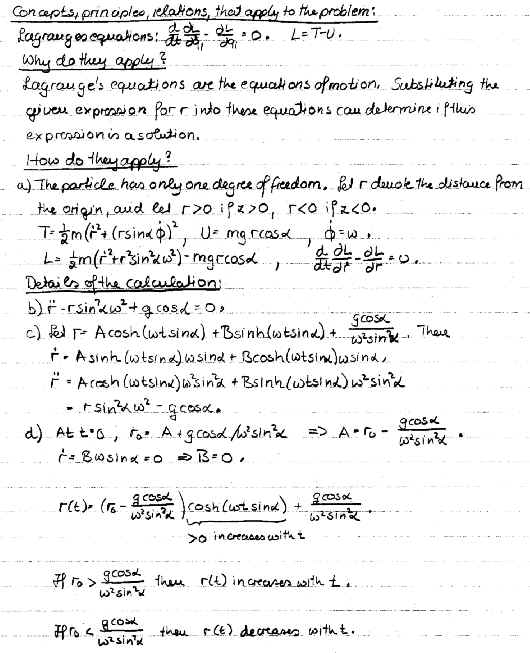 Concepts, principles, relations, that apply to the problem:
Lagranges equations: d/dt ∂L/∂q̇ᵢ - ∂L/∂qᵢ = 0. L=T-U.
Why do they apply?
Lagrange's equations are the equations of motion. Substituting the
given expression for r into these equations can determine if this
expression is a solution.
How do they apply?
a) The particle has only one degree of freedom. Let r denote the distance from
the origin, and let r>0 if z>0, r<0 if z<0.
T= ½m(ṙ²+(r sinα φ̇)², U= mgr cosα, φ̇=ω,
L= ½m(ṙ²+r²sin²αω²)-mgr cosα, d/dt ∂L/∂ṙ - ∂L/∂r = 0.
Details of the calculation:
b) r̈ - r sin²αω² + g cosα = 0,
c) Let r= A cosh(ωt sinα) + B sinh(ωt sinα) + g cosα/ω²sin²α. Then
ṙ = A sinh(ωt sinα)ω sinα + B cosh(ωt sinα)ω sinα,
r̈ = A cosh(ωt sinα)ω²sin²α + B sinh(ωt sinα)ω²sin²α
= r sin²αω² - g cosα.
d) At t=0, r₀ = A + g cosα/ω²sin²α => A = r₀ - g cosα/ω²sin²α.
ṙ = Bω sinα = 0 => B=0,
r(t)= (r₀ - g cosα/ω²sin²α) cosh(ωt sinα) + g cosα/ω²sin²α.
>0 increases with t
If r₀ > g cosα/ω²sin²α then r(t) increases with t.
If r₀ < g cosα/ω²sin²α then r(t) decreases with t.